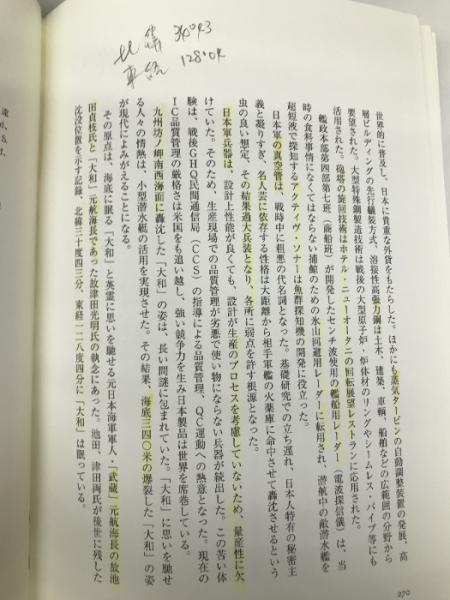 北緯 30°43
東経 128°04
世界的に普及し、日本に貴重な外貨をもたらした。ほかにも蒸気タービンの自動調整装置の発展、高
層ビルディングの先行艤装方式、溶接性高張力鋼は土木、建築、車輌、船舶などの広範囲の分野から
要望された。大型特殊鋼製造技術は戦後の大型原子炉・炉体材のリングやシームレス・パイプ等にも
活用された。砲塔の旋回技術はホテル・ニューオータニの回転展望レストランに応用された。
艦政本部第四部第七班(商船班)が開発したセンチ波使用の艦船用レーダー(電波探信儀)は、当
時の食料事情になくてはならない捕鯨のための氷山回避用レーダーに転用され、潜航中の敵潜水艦を
超短波で探知するアクティヴ・ソナーは魚群探知機の開発に役立った。
日本軍の真空管は、戦時中に粗悪の代名詞となった。基礎研究での立ち遅れ、日本人特有の秘密主
義と凝りすぎ、名人芸に依存する性格は大距離から相手軍艦の火薬庫に命中させて轟沈させるという
虫の良い想定、その結果過大兵装となり、各所に弱点を許す根源となった。
日本軍兵器は、設計上性能が良くても、設計が生産のプロセスを考慮していないため、量産性に欠
けていた。そのため、生産現場での品質管理が劣悪で使い物にならない兵器が続出した。この苦い体
験は、戦後GHQ民間通信局(CCS)の指導による品質管理、QC運動への熱意となった。現在の
IC品質管理の厳格さは米国をも追い越し、強い競争力を生み日本製品は世界を席巻している。
九州坊ノ岬南西海面に轟沈した「大和」の姿は、長い間謎に包まれていた。「大和」に思いを馳せ
る人々の情熱は、小型潜水艇の活用を実現させた。その結果、海底三四〇米の爆裂した「大和」の姿
が現代によみがえることになる。
その原点は、海底に眠る「大和」と英霊に思いを馳せる元日本海軍軍人、「武蔵」元航海長の故池
田貞枝氏と「大和」元航海長であった故津田光明氏の執念にあった。池田、津田両氏が後世に残した
沈没位置を示す記録、北緯三十度四三分、東経一二八度四分に「大和」は眠っている。
270